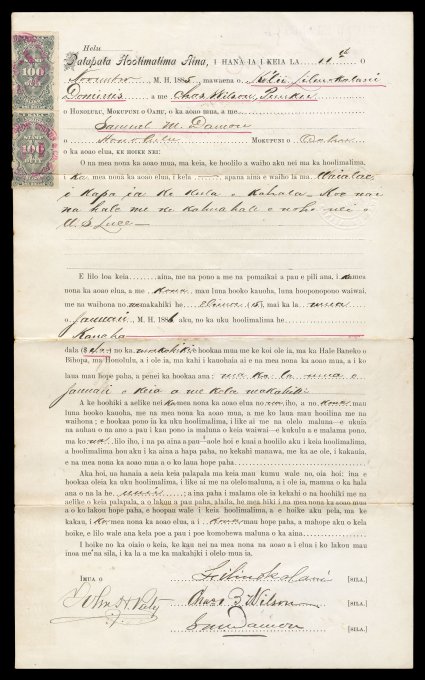 Helu
Palapala Hoolimalima Aina, I HANA IA I KEIA LA 11th O
Novembro M. H. 1885, mawaena o Lilii
Dominis a me Chas. Wilson,
O HONOLULU, MOKUPUNI O OAHU, o ka aoao mua, a me
Samuel M. Damon
o Honolulu MOKUPUNI O Oahu
o ka aoao elua, KE HOIKE NEI:
O na mea nona ka aoao mua, ma keia, ke hoolilo a waiho aku nei ma ka hoolimalima,
i ka mea nona ka aoao elua, i kela apana aina e waiho la ma Waialae,
i kapa ia ke Kula o Kahala. Koe nae
na hale me ke kahuahale e noho nei o
E lilo loa keia aina, me na pono a me na pomaikai a pau e pili ana, i ka mea
nona ka aoao elua, a me kona mau luna hooko kauoha, luna hooponopono waiwai,
me na waihona no na makahiki he (15), mai ka la mua
o Januari M. H. 1886 aku, no ka uku hoolimalima he
Kanaha
dala ($40) no ka makahiki hookaa mua me ke koi ole ia, ma ka Hale Baneko o
Bihopa, ma Honolulu, a i ole ia, ma kahi i kauohaia ai e na mea nona ka aoao mua, a i ko
laua mau hope paha, a penei ka hookaa ana: ma ka la mua o
Januari o keia a me kela makahiki.
A ke hoohiki a aelike nei ka mea nona ka aoao elua no na iho, a no kona mau
luna hooko kauoha, me na mea nona ka aoao mua, a me ko laua mau hoolina me na
waihona; e hookaa aku i ka uku hoolimalima, i like ai me na olelo maluna
na auhau o na ano a pau i kau pono ia maluna o keia waiwai—e kukulu a e malama pono,
ma ko na lilo iho, i na pa aina a pau—a ole hoi e kuai a hoolilo aku i keia hoolimalima,
a hoolimalima hou aku i ka aina a hapa paha, no kekahi manawa, me ka ae ole, i kakauia,
e na mea nona ka aoao mua a o ko laua hope paha.
Aka hoi, ua hanaia a eia keia palapala ma keia mau kumu wale no, oia hoi: ina e
hookaa oleia ka uku hoolimalima, i like ai me na olelo maluna, a i ole ia, mamua o ka hala
ana o na la he umi; a ina paha i malama ole ia kekahi o na hoohiki me na
aelike o keia palapala, a o lakou a pau paha, alaila, he mea hiki i na mea nona ka aoao mua
a o ko lakou hope paha, e hoopau wale i keia hoolimalima, a e hoike aku pela, ma ke
kakau, i ka mea nona ka aoao elua, a i kona mau hope paha, a mahope aku o kela
hoike, e lilo wale ana kela poe a pau i poe komohewa maluna o ka aina.
I hoike no ka oiaio o keia, ke kau nei na mea nona na aoao a elua i ko lakou mau
inoa me na sila, i ka la a me ka makahiki i olelo mua ia.
IMUA O
[SILA.]
Chas. B. Wilson [SILA.]
S M Damon [SILA.]
100
100